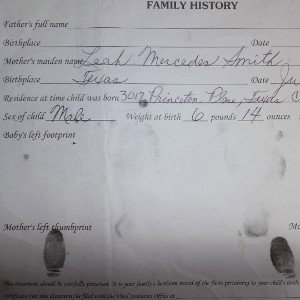 FAMILY HISTORY
Father's full name
Birthplace Date
Mother's maiden name Leah Mercedes Smith
Birthplace Texas Date Ju
Residence at time child was born 3017 Princeton
Sex of child Male Weight at birth 6 pounds 14 ounces
Baby's left footprint
Mother's left thumbprint
This document should be carefully preserved. It is your family's heirloom record of the facts pertaining to your child's birth
certificate (not this document) be filed with the Vital Statistics Office at